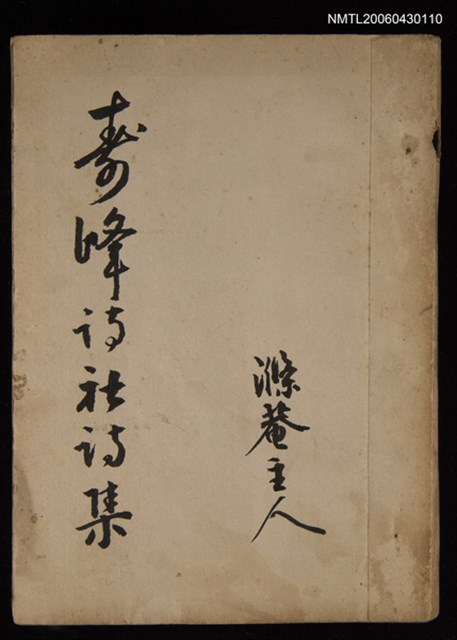 NMTL20060430110
滌菴主人
壽峰詩社詩集